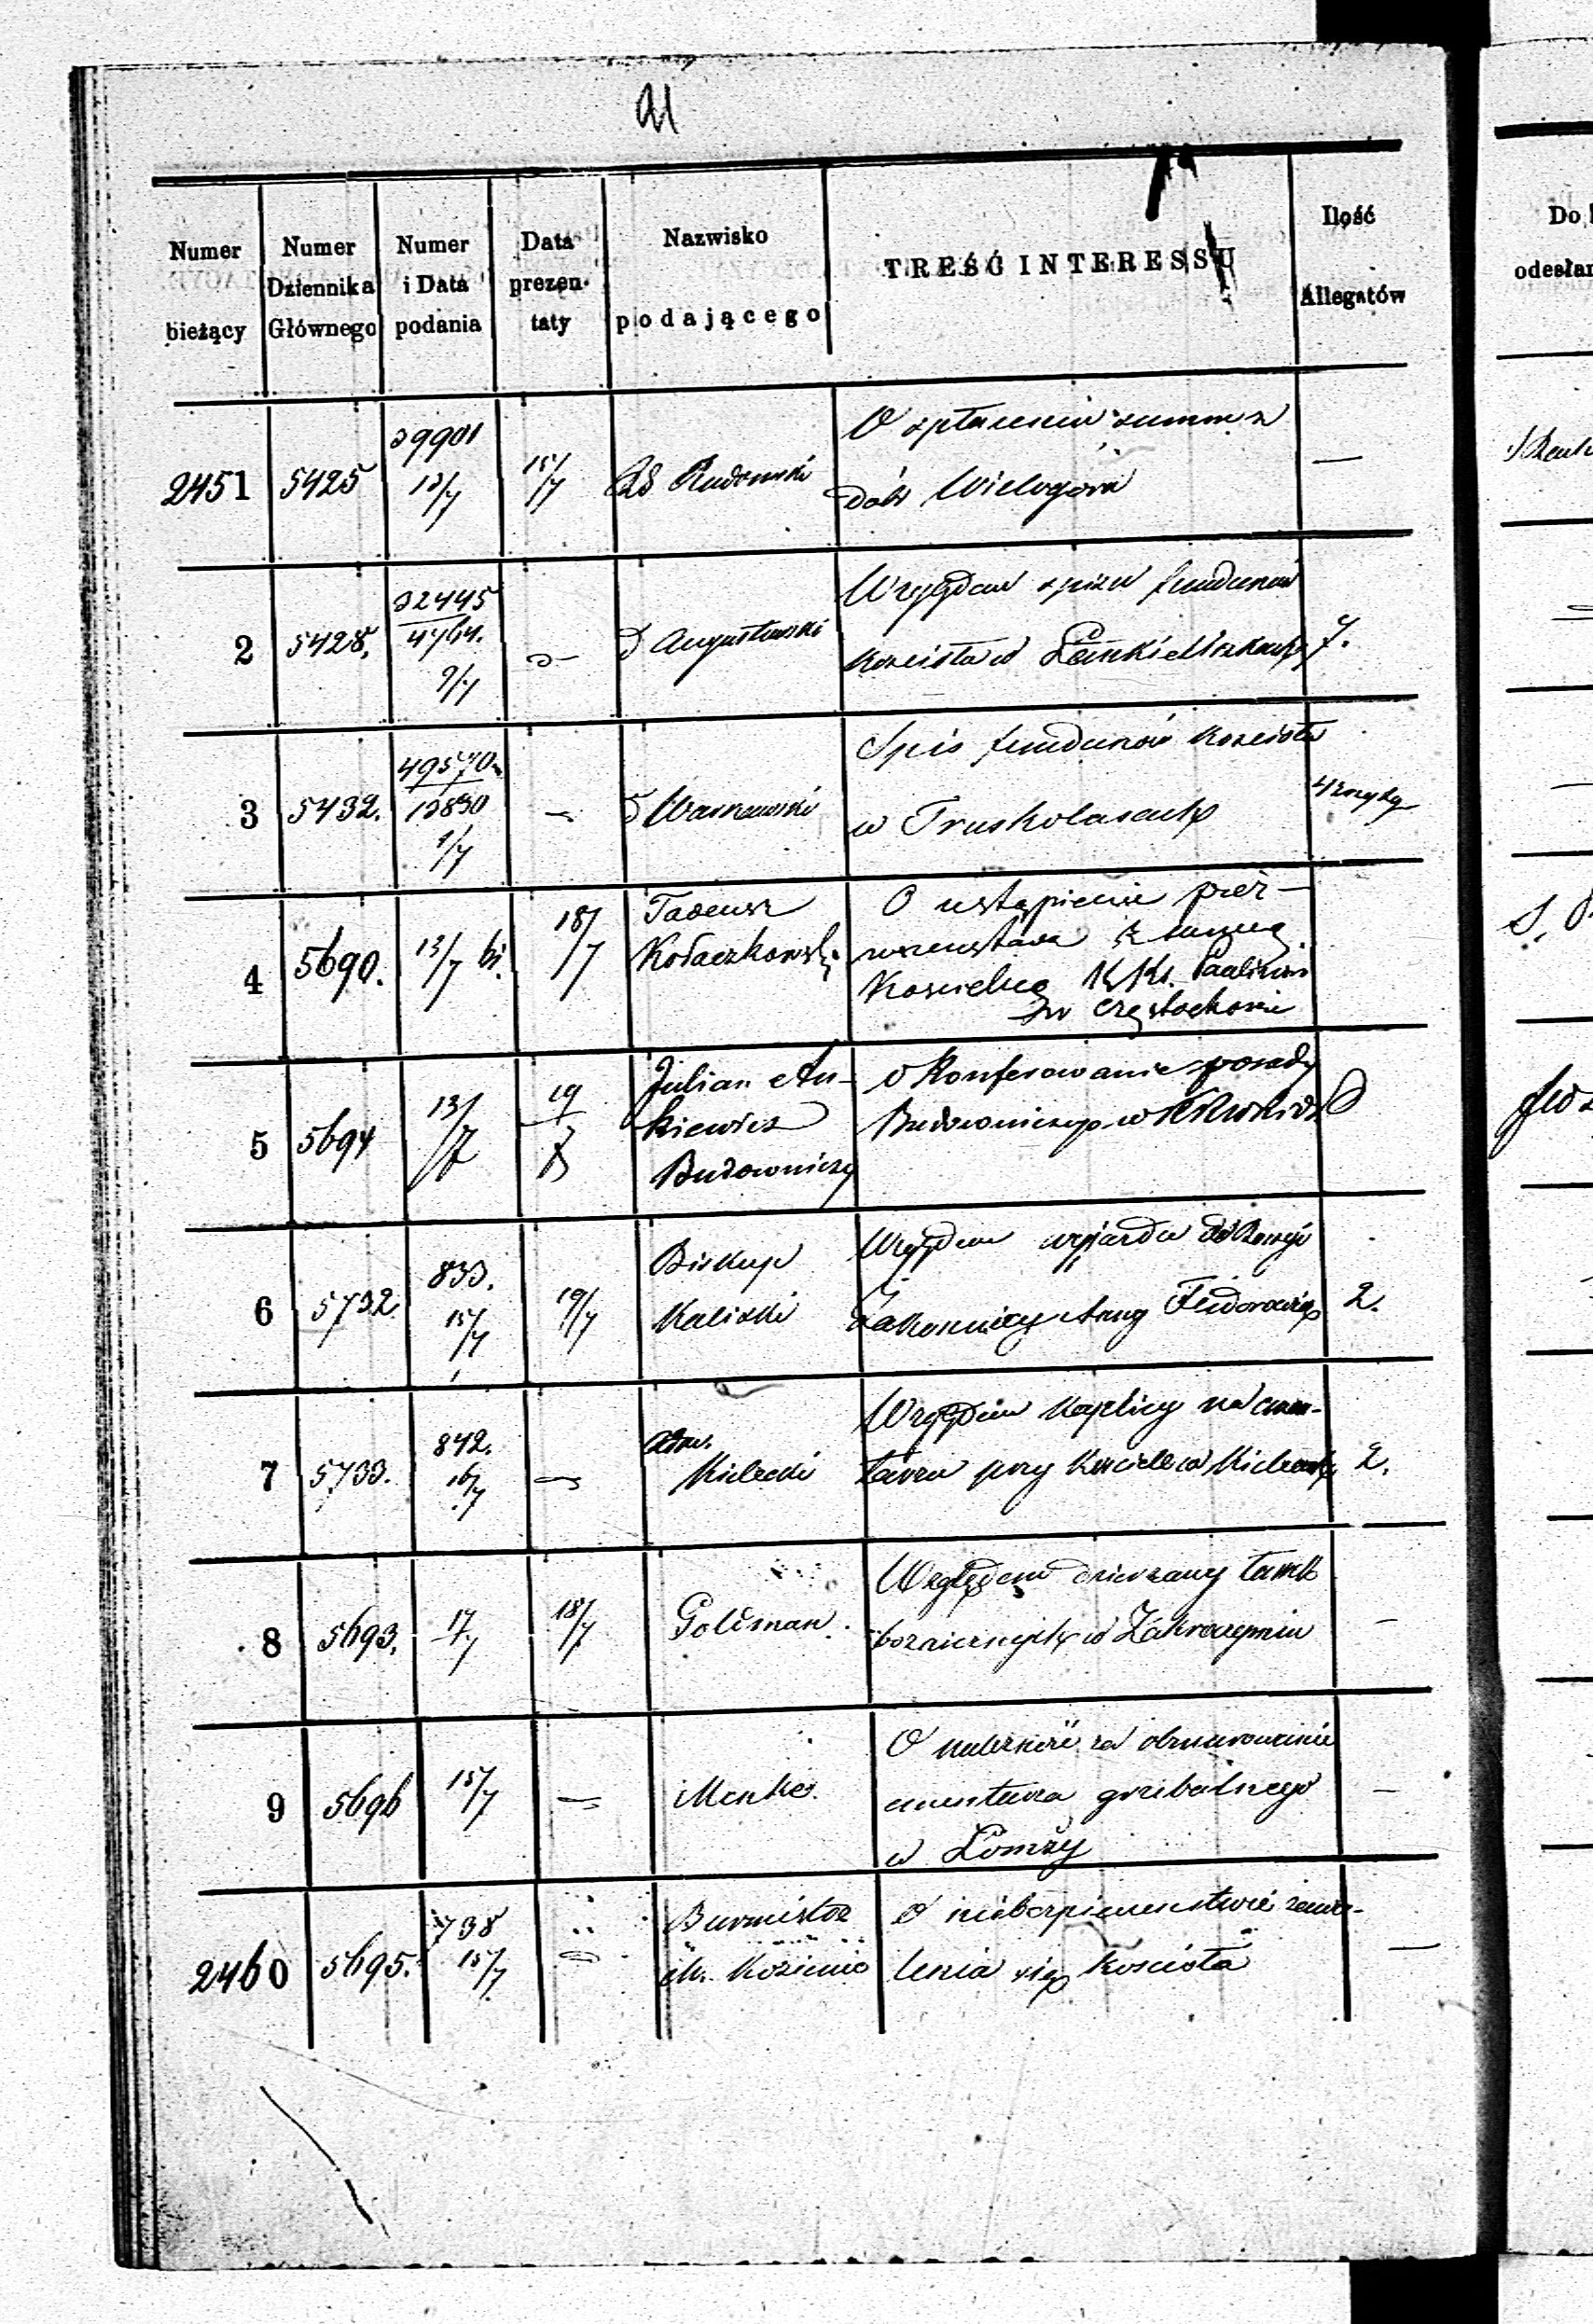 21
Numer bieżący
Numer Dziennika Głównego
Numer i Data podania
Data prezentaty
Nazwisko podającego
TREŚĆ INTERESSU
Ilość Allegatów
Do
odesłan
2451 5425 29901 12/7 15/7 Radomski
O spłacenie summ z
dóbr Wielogóra —
2 5428. 32445 4764. 9/7 Augustowski
Względem spisu funduszów
Kościoła w 7.
3 5432. 49570 12830 1/7 Warszawski
Spis funduszów Kościoła
w Truskolasach
4 5690. 13/7 18/7 Tadeusz
Kołaczkowski
O ustąpienie pier-
wszeństwa
Kościelną KKs. Paulinów
w Częstochowie
5 5694 13/7 19/7 Julian An-
kiewicz
Budowniczy
O Konferowanie posady
Budowniczego w
6 5732. 833. 15/7 19/7 Biskup
Kaliski
Względem wyjazdu do Rossyi
Zakonnicy Anny 2.
7 5733. 842. 16/7 Adm.
Kielecki
Względem Kaplicy na cmen-
tarzu przy Kościele w Kielcach 2.
8 5693. 17/7 18/7 Goldman.
Względem dzierzawy
bożniczych w Zakroczymiu —
9 5696 15/7 Menkes.
O należność za obmurowanie
cmentarza grzebalnego
w Łomży —
2460 5695. 738 15/7 Burmistrz
m. Kozienic
O niebezpieczeństwie zawa-
lenia się Kościoła —